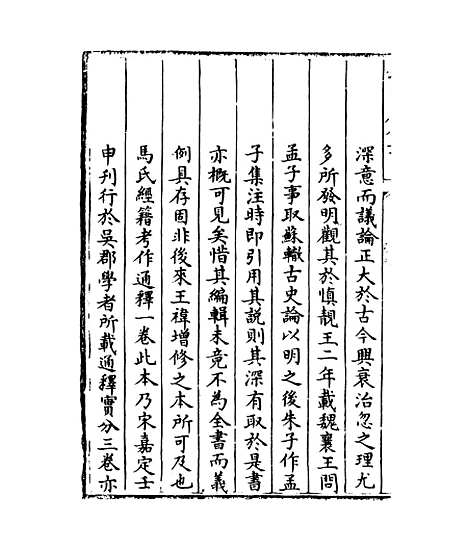 深意而議論正大於古今興衰治忽之理尤
多所發明觀其於慎靚王二年載魏襄王問
孟子事取蘇轍古史論以明之後朱子作孟
子集注時即引用其説則其深有取於是書
亦概可見矣惜其編輯未竟不為全書而義
例具存固非後來王禕增修之本所可及也
馬氏經籍考作通釋一卷此本乃宋嘉定壬
申刊行於吳郡學者所載通釋實分三卷亦